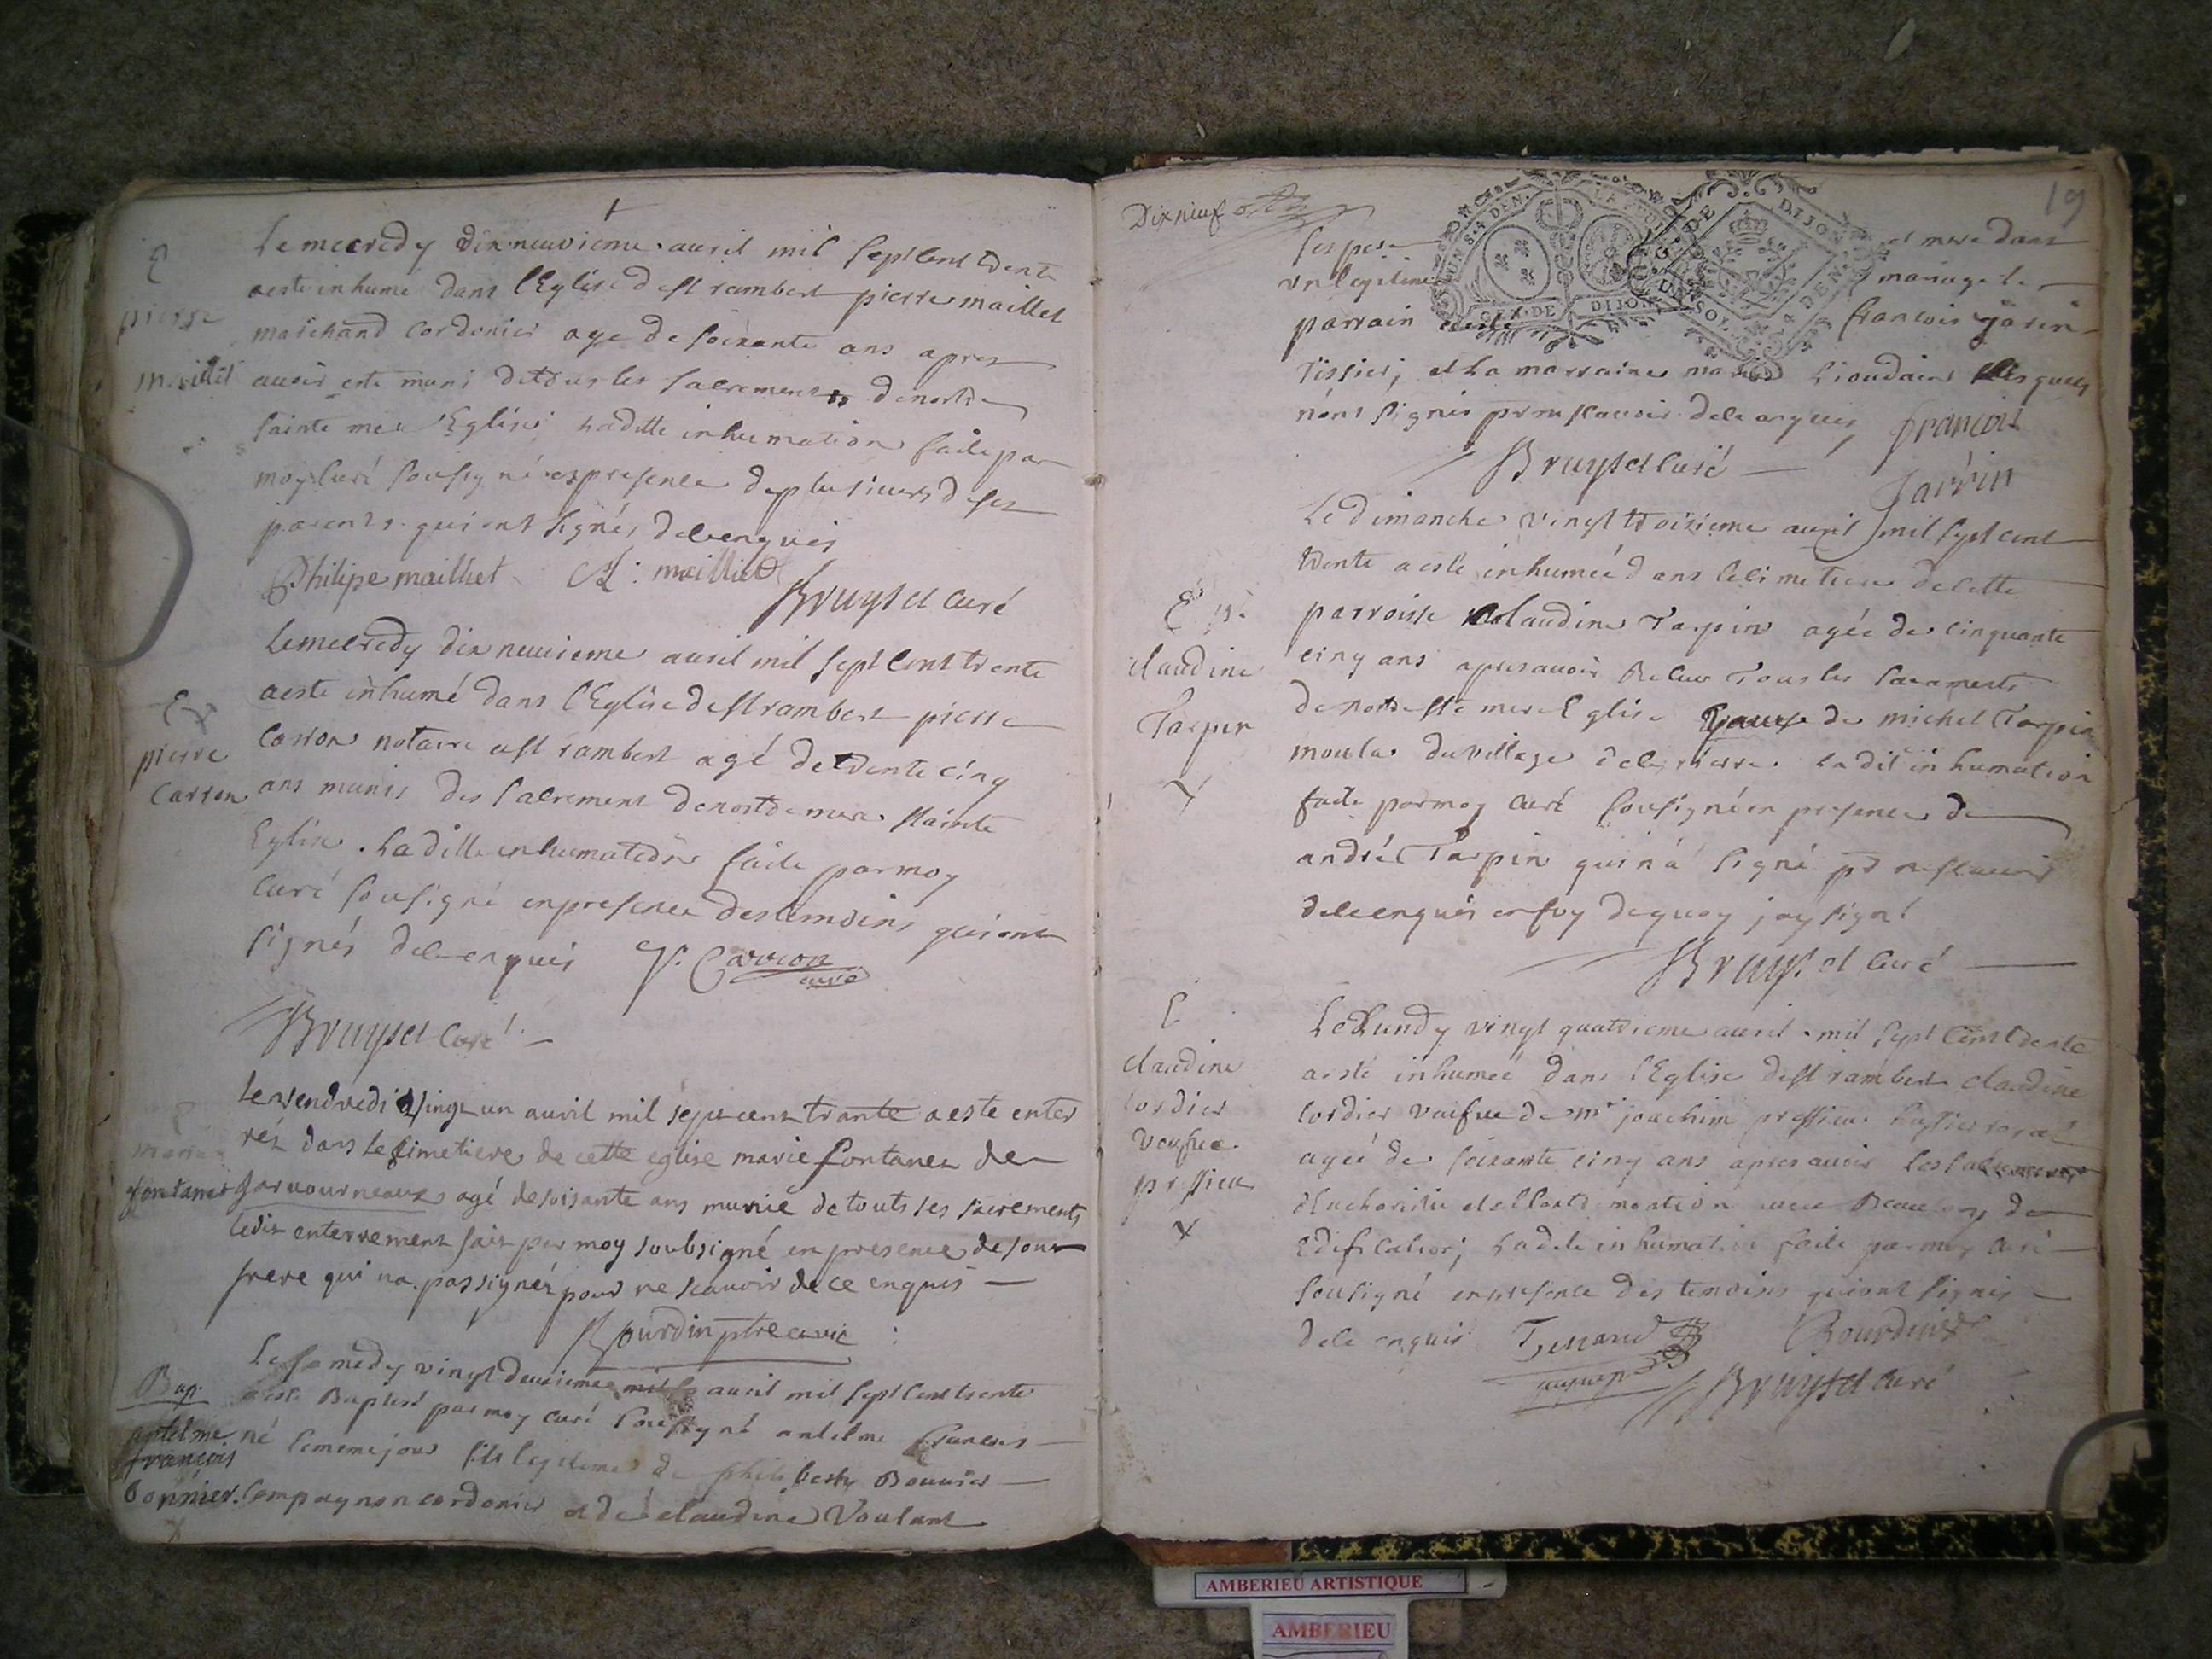 E
pierre
maillet
Le mecredy dix neuvieme avril mil sept cent trente
a este inhumé dans l'Eglise de st rambert pierre maillet
marchand cordonier age de soixante ans apres
avoir esté muni de tous les sacrements de nostre
sainte mere l'Eglise; laditte inhumation faite par
moy curé sousigné en presence de plusieurs de ses
parents qui ont signés de ce enquis
Philipe maillet maillet
Bruyset curé
E
pierre
Carron
Le mecredy dix neuvieme avril mil sept cent trente
a este inhumé dans l'Eglise de st rambert pierre
Carron notaire a st rambert agé de trente cinq
ans munis des sacrement de nostre mere sainte
Eglise. laditte inhumation faite par moy
curé sousigné en presence des temoins qui ont
signés de ce enquis P. Carron
curé
Bruyset Curé
marie
fontanes
Le vendredi vingt un avril mil sept cent trante a este enter
réz dans le cimetiere de cette eglise marie fontanez de
agé de soisante ans munie de touts ses sacrements
ledit enterrement fait par moy soubsigné en presence de son
frere qui na pas signéz pour ne scauoir de ce enquis
Bourdin ptre
Bap.
antelme
françois
bonnier
Le samedy vingt deuxieme avril mil sept cent trente
a esté Baptisé par moy curé sousigné antelme francois
né le meme jour fils legitime de philibert Bouvier
Compagnon cordonier et de claudine Voulant
Dix neuf
19
ses pere et mere dans
un legitime mariage le
parrain a esté francois jarin
Tissier; et la marraine Lioudain lesquels
n'ont signés pour ne scavoir de ce enquis françois
Bruyset curé
Jarrin
Le dimanche vingt troisieme avril mil sept cent
trente a esté inhumée dans le cimetiere de cette
parroisse claudine Tarpin agée de cinquante
cinq ans apres avoir Receu Tous les sacrements
de nostre ste mere Eglise de michel Tarpin
du village de ladit inhumation
faite par moy curé sousigné en presence de
andré Tarpin qui n'a signé pr ne scavoir
de ce enquis en foy de quoy j'ay signé
Bruyset Curé
E
claudine
Tarpin
E
claudine
cordier
veufve
pressieu
Le Lundy vingt quatrieme avril mil sept cent trente
a esté inhumée dans l'Eglise de st rambert claudine
Cordier veufve de mr joachim pressieu royal
agée de soixante cinq ans apres avoir
d'Eucharistie et de l'extreme onction avec Beaucoup de
Edification; ladite inhumation faite par moy curé
sousigné en presence des temoins qui ont signés
de ce enquis Bourdin
Bruyset curé
UN S. 4 DEN.
GEN. DE DIJON
G. DE DIJON
UN SOL 4 DEN.
AMBERIEU ARTISTIQUE
AMBERIEU